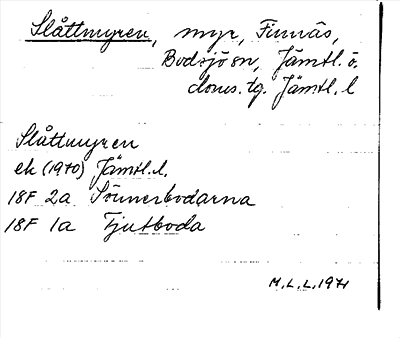 Slåttmyren, myr, Finnäs,
Bodsjö sn, Jämtl. ö.
doms. tg. Jämtl. l
Slåttmyren
ek (1970) Jämtl. l.
18F 2a Sönnerbodarna
18F 1a Fjutboda
M.L.L. 1971